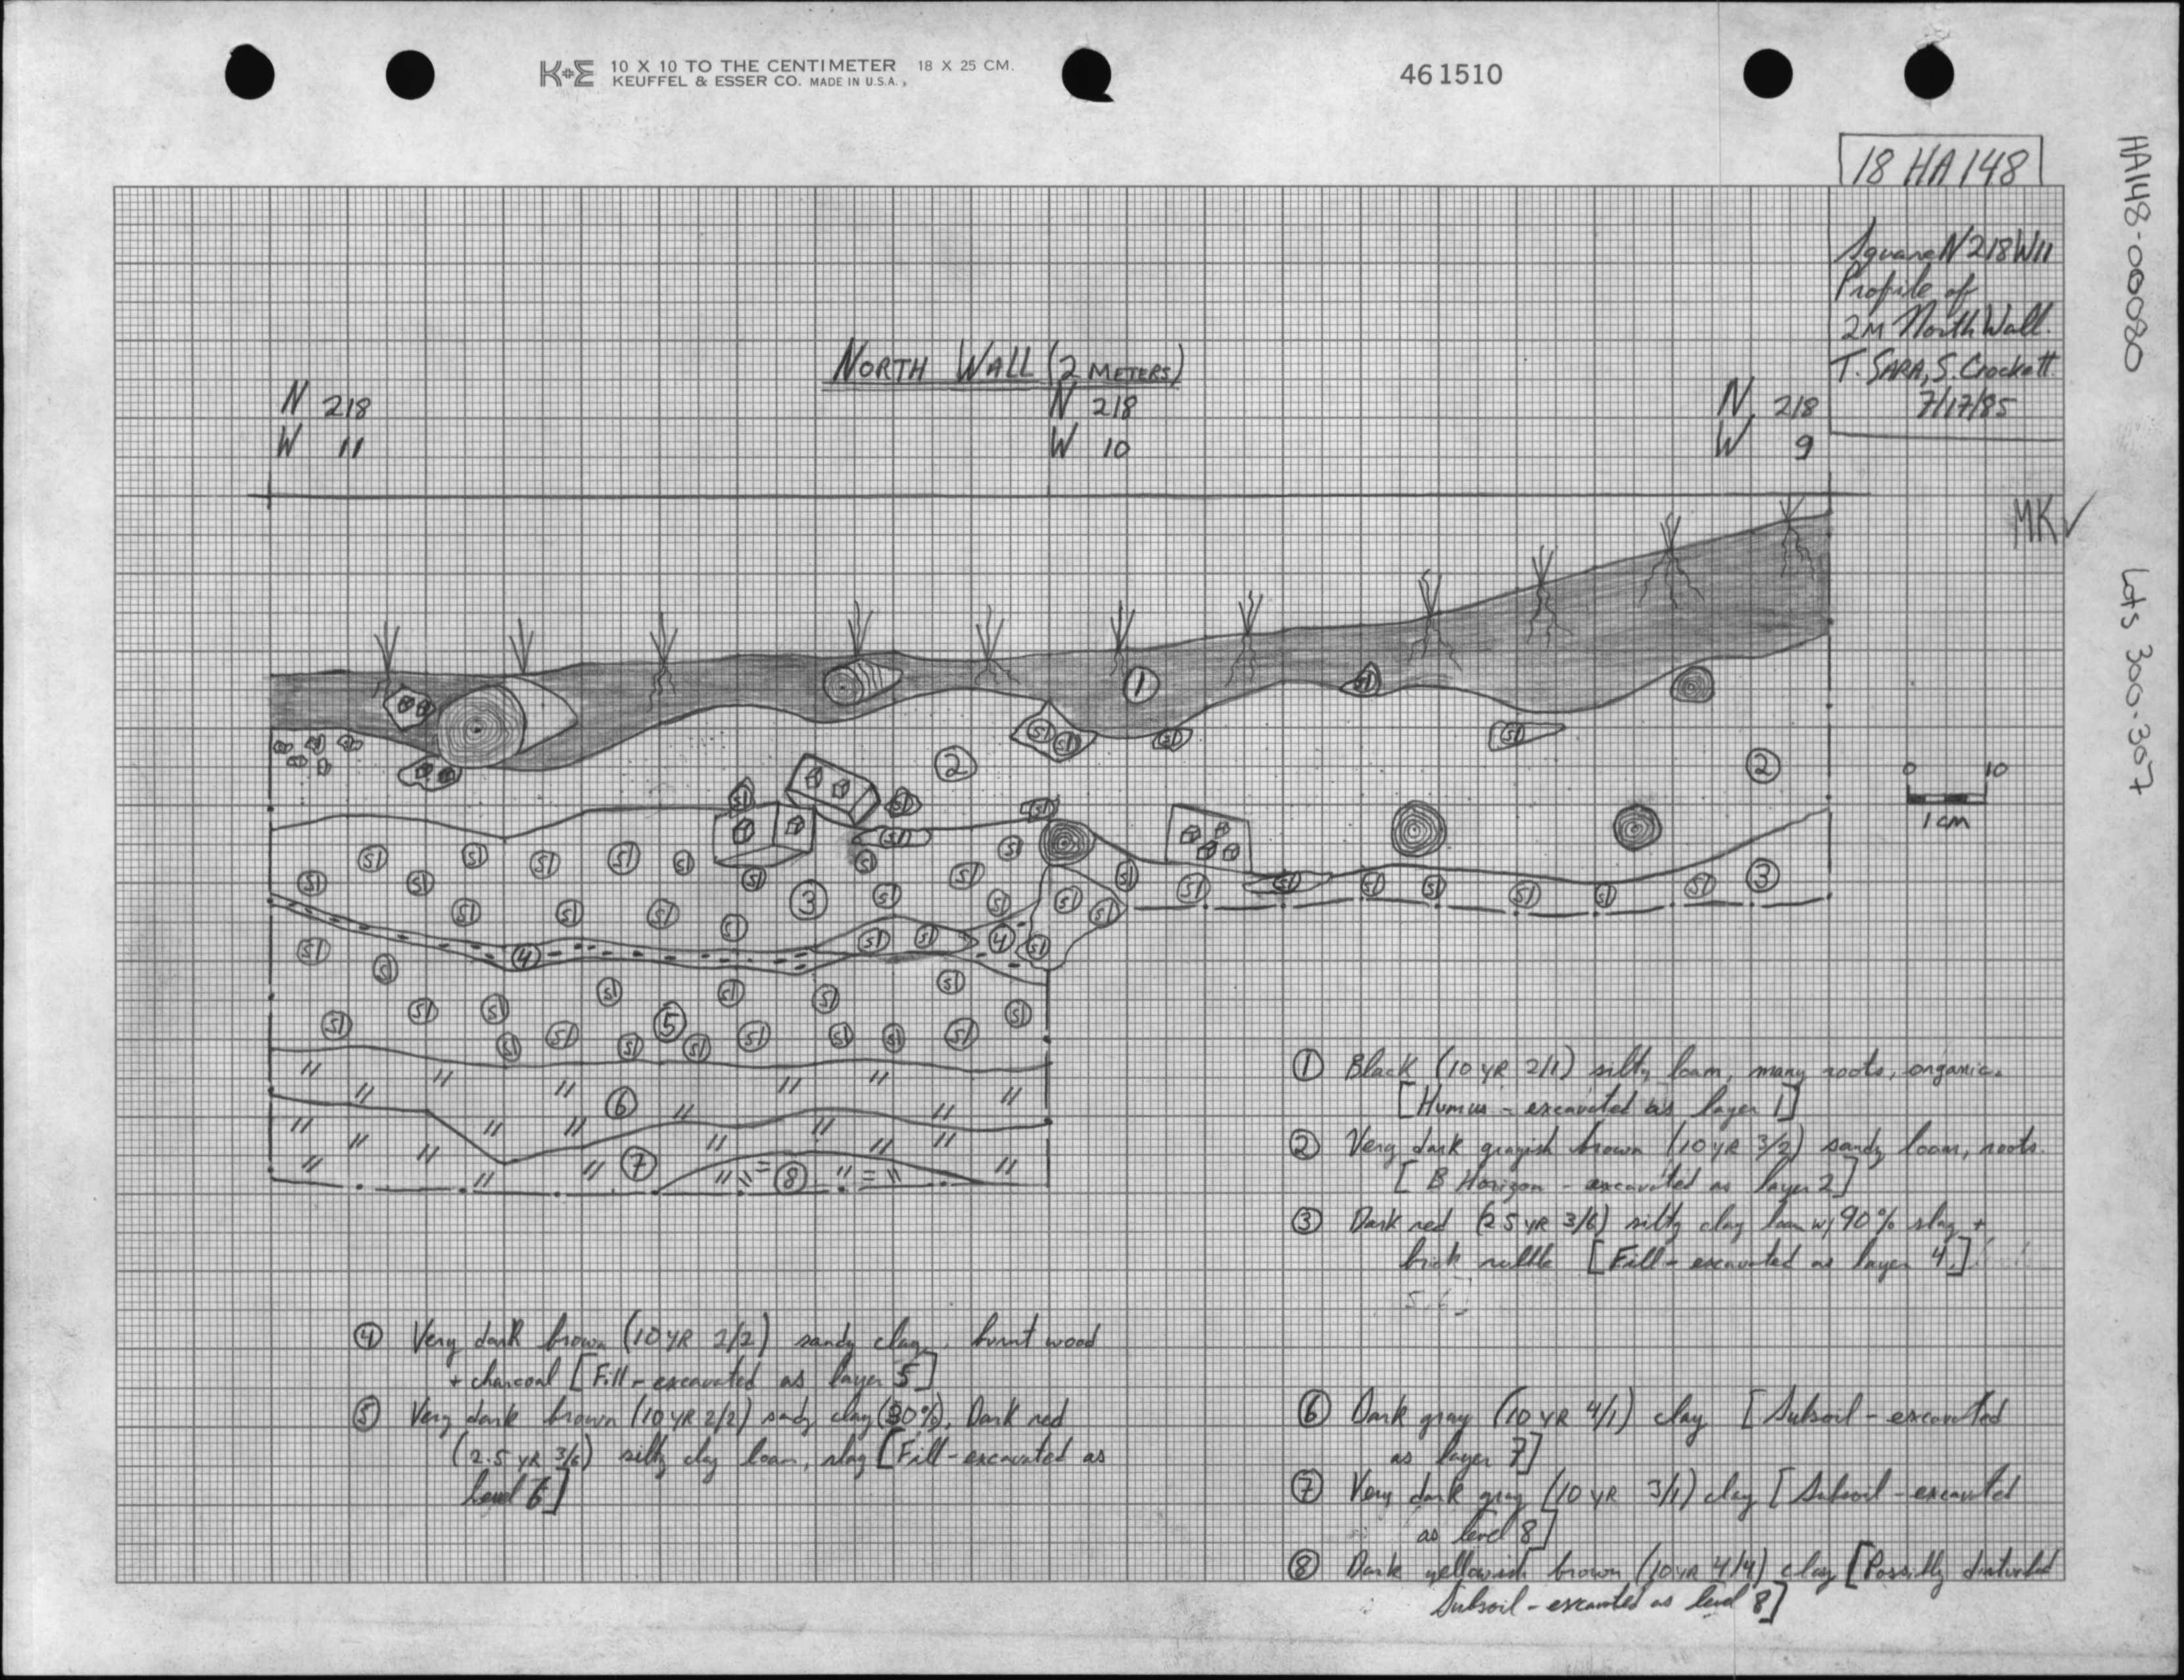 K+E 10 X 10 TO THE CENTIMETER 18 X 25 CM.
KEUFFEL & ESSER CO. MADE IN U.S.A.
46 1510
18 HA 148
HA148-00080
Square N218W11
Profile of
2M North Wall.
T. SARA, S. Crockett
7/17/85
NORTH WALL (2 METERS)
N 218
W 11
N 218
W 10
N 218
W 9
MK✓
Lots 300-307
1
2
2
0 10
1 cm
Sl Sl Sl Sl Sl
3
3
4
4
5
6
7
8
① Black (10 YR 2/1) silty loam, many roots, organic.
[Humus - excavated as layer 1]
② Very dark grayish brown (10 YR 3/2) sandy loam, roots.
[B Horizon - excavated as layer 2]
③ Dark red (2.5 YR 3/6) silty clay loam w/ 90% slag +
brick rubble [Fill - excavated as layer 4]
④ Very dark brown (10 YR 2/2) sandy clay, burnt wood
+ charcoal [Fill - excavated as layer 5]
⑤ Very dark brown (10 YR 2/2) sandy clay (30%), Dark red
(2.5 YR 3/6) silty clay loam, slag [Fill - excavated as
level 6]
⑥ Dark gray (10 YR 4/1) clay [Subsoil - excavated
as layer 7]
⑦ Very dark gray (10 YR 3/1) clay [Subsoil - excavated
as level 8]
⑧ Dark yellowish brown (10 YR 4/4) clay [Possibly disturbed
Subsoil - excavated as level 8]